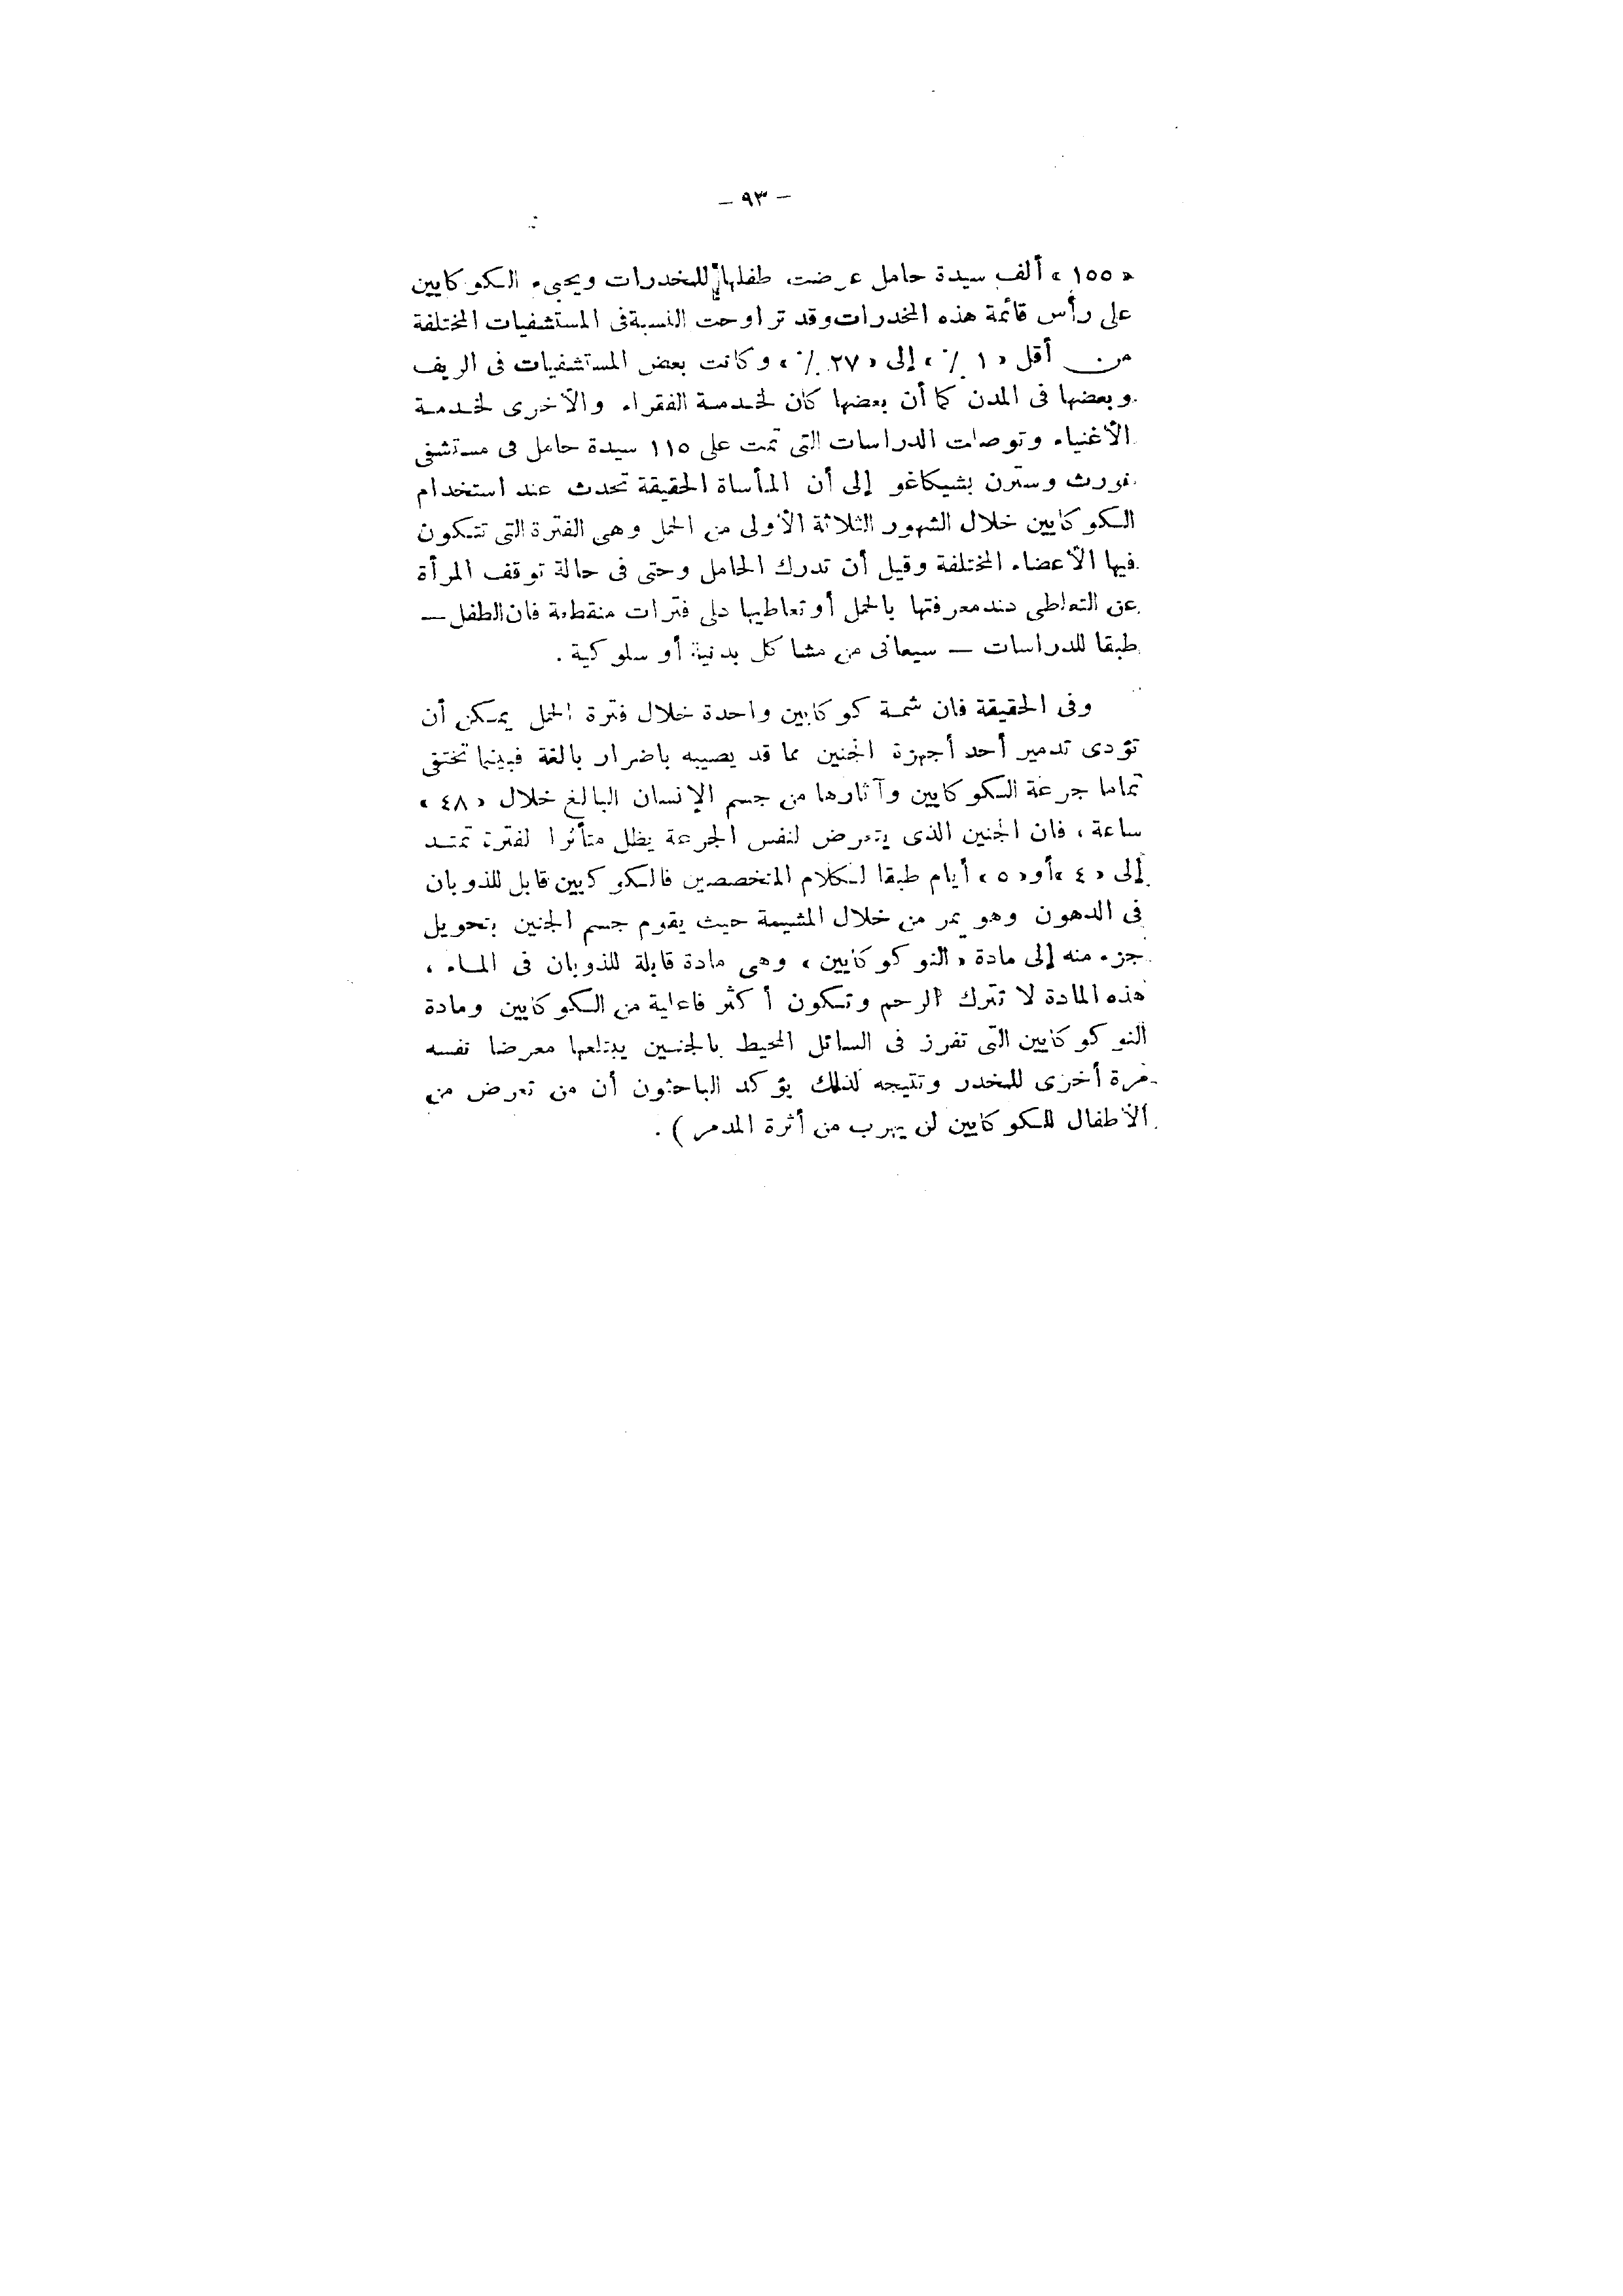 - ٩٣ -
« ١٥٥ » ألف سيدة حامل عرضت طفلها للمخدرات ويجىء الكوكايين
على رأس قائمة هذه المخدرات وقد تراوحت النسبة فى المستشفيات المختلفة
من أقل « ١ ٪ » إلى « ٢٧ ٪ » وكانت بعض المستشفيات فى الريف
وبعضها فى المدن كما أن بعضها كان لخدمة الفقراء والأخرى لخدمة
الأغنياء وتوصلت الدراسات التى تمت على ١١٥ سيدة حامل فى مستشفى
نورث وسترن بشيكاغو إلى أن المأساة الحقيقة تحدث عند استخدام
الكوكايين خلال الشهور الثلاثة الأولى من الحمل وهى الفترة التى تتكون
فيها الأعضاء المختلفة وقبل أن تدرك الحامل وحتى فى حالة توقف المرأة
عن التعاطى عند معرفتها بالحمل أو تعاطيها على فترات متقطعة فان الطفل —
طبقا للدراسات — سيعانى من مشاكل بدنية أو سلوكية .
وفى الحقيقة فان شمة كوكايين واحدة خلال فترة الحمل يمكن أن
تؤدى تدمير أحد أجهزة الجنين مما قد يصيبه باضرار بالغة فبينما تختفى
تماما جرعة الكوكايين وآثارها من جسم الإنسان البالغ خلال « ٤٨ »
ساعة ، فان الجنين الذى يتعرض لنفس الجرعة يظل متأثرا لفترة تمتد
إلى « ٤ » أو « ٥ » أيام طبقا لكلام المتخصصين فالكوكيين قابل للذوبان
فى الدهون وهو يمر من خلال المشيمة حيث يقوم جسم الجنين بتحويل
جزء منه إلى مادة « النوكوكايين » وهى مادة قابلة للذوبان فى الماء ،
هذه المادة لا تترك الرحم وتكون أكثر فاعلية من الكوكايين ومادة
النوكوكايين التى تفرز فى السائل المحيط بالجنين يبتلعها معرضا نفسه
مرة أخرى للمخدر ونتيجه لذلك يؤكد الباحثون أن من تعرض من
الأطفال للكوكايين لن يهرب من أثرة المدمر ) .